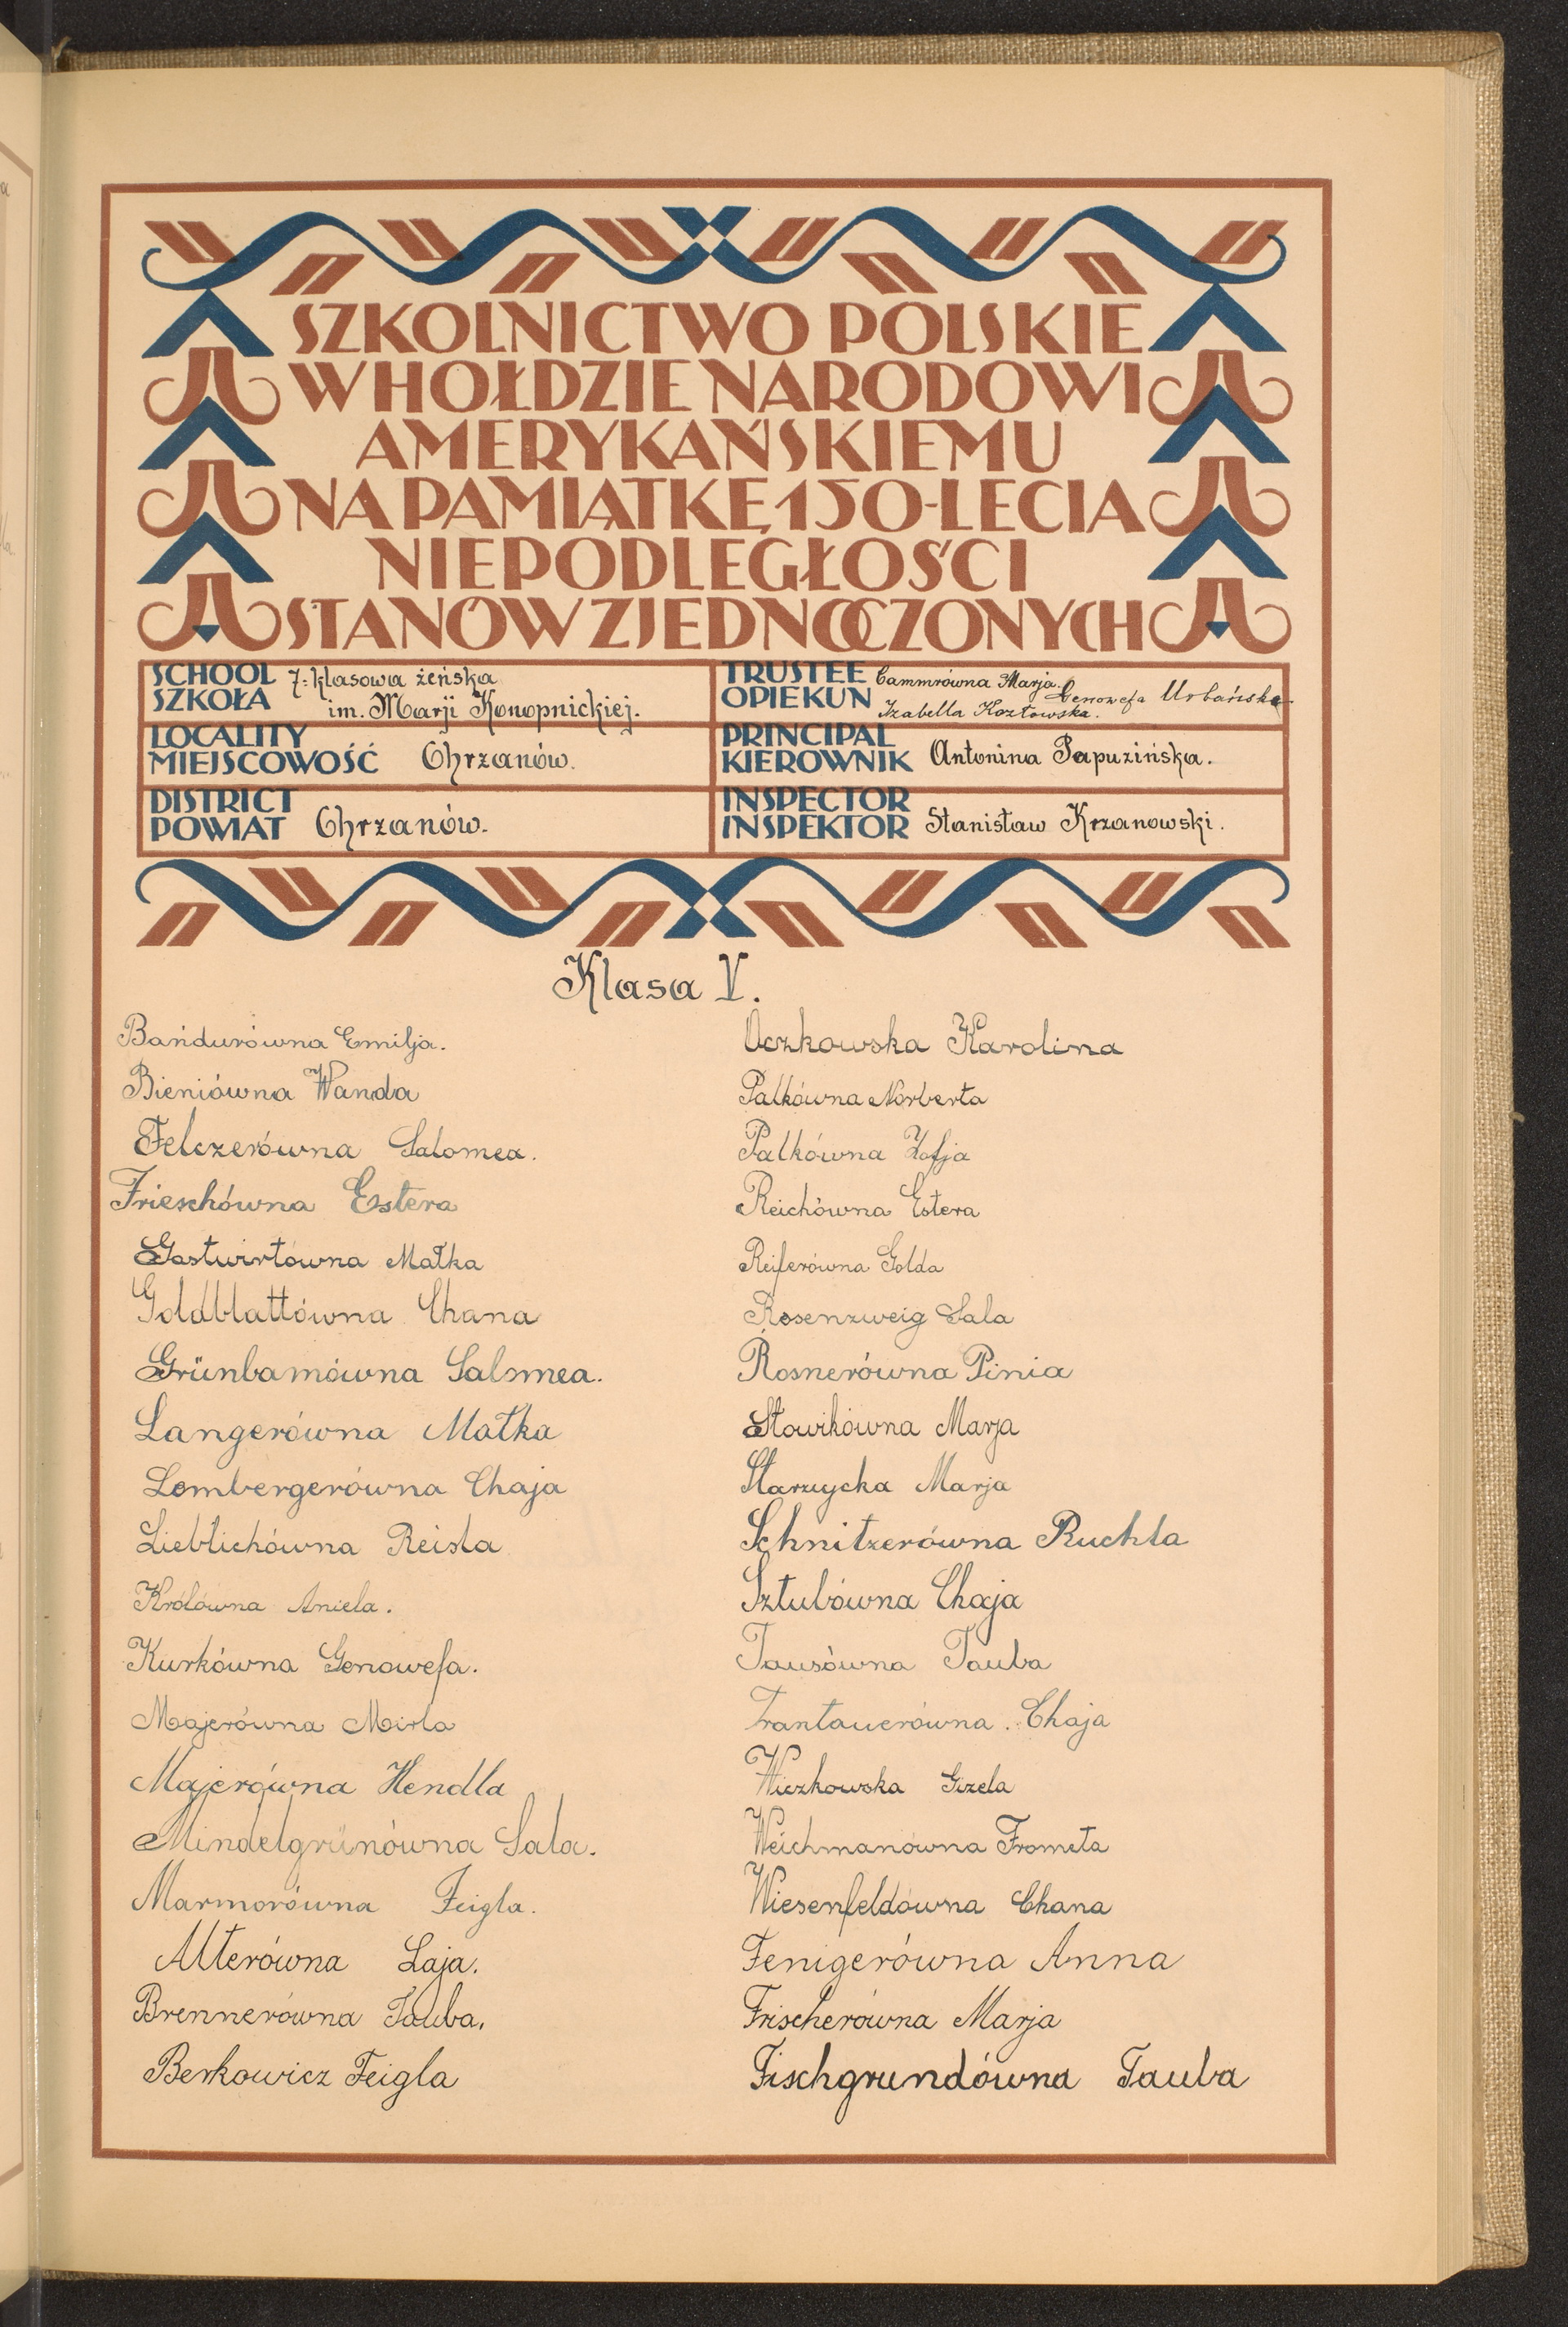 SZKOLNICTWO POLSKIE
W HOŁDZIE NARODOWI
AMERYKAŃSKIEMU
NA PAMIĄTKĘ 150-LECIA
NIEPODLEGŁOŚCI
STANÓW ZJEDNOCZONYCH
SCHOOL
SZKOŁA
7-klasowa żeńska
im. Marji Konopnickiej.
TRUSTEE
OPIEKUN
Cammrówna Marja.
Genowefa Urbańska
Izabella Kozłowska.
LOCALITY
MIEJSCOWOŚĆ
Chrzanów.
PRINCIPAL
KIEROWNIK
Antonina Papuzińska.
DISTRICT
POWIAT
Chrzanów.
INSPECTOR
INSPEKTOR
Stanisław Krzanowski.
Klasa V.
Bańdurówna Emilja.
Bieniówna Wanda
Felczerówna Salomea.
Frieschówna Estera
Gastwirtówna Małka
Goldblattówna Chana
Grünbamówna Salomea.
Langerówna Małka
Lembergerówna Chaja
Lieblichówna Reisla
Królówna Aniela.
Kurkówna Genowefa.
Majerówna Mirla
Majerówna Hendla
Mindelgrünówna Sala.
Marmorówna Feigla.
Alterówna Laja.
Brennerówna Tauba.
Berkowicz Feigla
Oczkowska Karolina
Palkówna Norberta
Palkówna Zofja
Reichówna Estera
Reiferówna Golda
Rosenzweig Sala
Rosnerówna Pinia
Słowikówna Marja
Starzycka Marja
Schnitzerówna Ruchla
Sztubówna Chaja
Tausówna Tauba
Trantauerówna Chaja
Wieczkowska Gizela
Weichmanówna Frometa
Wiesenfeldówna Chana
Fenigerówna Anna
Frischerówna Marja
Fischgrundówna Tauba